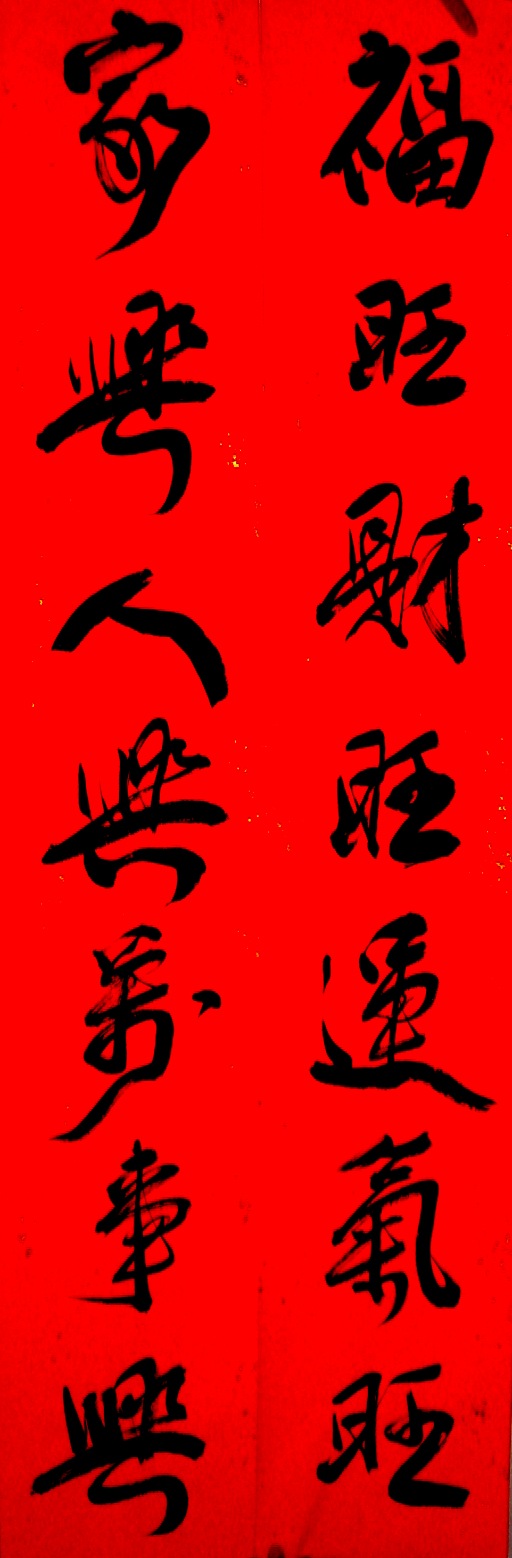 福旺財旺運氣旺
家興人興萬事興